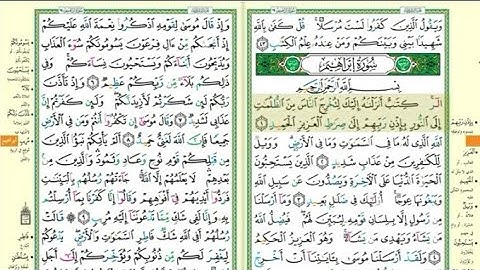 وَيَقُولُ ٱلَّذِينَ كَفَرُوا۟ لَسْتَ مُرْسَلًا ۚ قُلْ كَفَىٰ بِٱللَّهِ
شَهِيدًۢا بَيْنِى وَبَيْنَكُمْ وَمَنْ عِندَهُۥ عِلْمُ ٱلْكِتَٰبِ ٤٣
سُورَةُ إِبْرَاهِيمَ
بِسْمِ ٱللَّهِ ٱلرَّحْمَٰنِ ٱلرَّحِيمِ
الٓر ۚ كِتَٰبٌ أَنزَلْنَٰهُ إِلَيْكَ لِتُخْرِجَ ٱلنَّاسَ مِنَ ٱلظُّلُمَٰتِ
إِلَى ٱلنُّورِ بِإِذْنِ رَبِّهِمْ إِلَىٰ صِرَٰطِ ٱلْعَزِيزِ ٱلْحَمِيدِ ١
ٱللَّهِ ٱلَّذِى لَهُۥ مَا فِى ٱلسَّمَٰوَٰتِ وَمَا فِى ٱلْأَرْضِ ۗ وَوَيْلٌ
لِّلْكَٰفِرِينَ مِنْ عَذَابٍ شَدِيدٍ ٢ ٱلَّذِينَ يَسْتَحِبُّونَ
ٱلْحَيَوٰةَ ٱلدُّنْيَا عَلَى ٱلْءَاخِرَةِ وَيَصُدُّونَ عَن سَبِيلِ ٱللَّهِ
وَيَبْغُونَهَا عِوَجًا ۚ أُو۟لَٰٓئِكَ فِى ضَلَٰلٍۭ بَعِيدٍ ٣ وَمَآ أَرْسَلْنَا
مِن رَّسُولٍ إِلَّا بِلِسَانِ قَوْمِهِۦ لِيُبَيِّنَ لَهُمْ ۖ فَيُضِلُّ ٱللَّهُ
مَن يَشَآءُ وَيَهْدِى مَن يَشَآءُ ۚ وَهُوَ ٱلْعَزِيزُ ٱلْحَكِيمُ
٤ وَلَقَدْ أَرْسَلْنَا مُوسَىٰ بِـَٔايَٰتِنَآ أَنْ أَخْرِجْ
وَإِذْ قَالَ مُوسَىٰ لِقَوْمِهِ ٱذْكُرُوا۟ نِعْمَةَ ٱللَّهِ عَلَيْكُمْ
إِذْ أَنجَىٰكُم مِّنْ ءَالِ فِرْعَوْنَ يَسُومُونَكُمْ سُوٓءَ ٱلْعَذَابِ
وَيُذَبِّحُونَ أَبْنَآءَكُمْ وَيَسْتَحْيُونَ نِسَآءَكُمْ ۚ وَفِى
ذَٰلِكُم بَلَآءٌ مِّن رَّبِّكُمْ عَظِيمٌ ٦ وَإِذْ تَأَذَّنَ
رَبُّكُمْ لَئِن شَكَرْتُمْ لَأَزِيدَنَّكُمْ ۖ وَلَئِن كَفَرْتُمْ إِنَّ
عَذَابِى لَشَدِيدٌ ٧ وَقَالَ مُوسَىٰٓ إِن تَكْفُرُوٓا۟ أَنتُمْ وَمَن فِى ٱلْأَرْضِ
جَمِيعًا فَإِنَّ ٱللَّهَ لَغَنِىٌّ حَمِيدٌ ٨ أَلَمْ يَأْتِكُمْ نَبَؤُا۟ ٱلَّذِينَ
مِن قَبْلِكُمْ قَوْمِ نُوحٍ وَعَادٍ وَثَمُودَ ۛ وَٱلَّذِينَ مِنۢ
بَعْدِهِمْ ۛ لَا يَعْلَمُهُمْ إِلَّا ٱللَّهُ ۚ جَآءَتْهُمْ رُسُلُهُم بِٱلْبَيِّنَٰتِ
فَرَدُّوٓا۟ أَيْدِيَهُمْ فِىٓ أَفْوَٰهِهِمْ وَقَالُوٓا۟ إِنَّا كَفَرْنَا بِمَآ أُرْسِلْتُم
بِهِۦ وَإِنَّا لَفِى شَكٍّ مِّمَّا تَدْعُونَنَآ إِلَيْهِ مُرِيبٍ ٩ قَالَتْ
رُسُلُهُمْ أَفِى ٱللَّهِ شَكٌّ فَاطِرِ ٱلسَّمَٰوَٰتِ وَٱلْأَرْضِ ۖ يَدْعُوكُمْ
لِيَغْفِرَ لَكُم مِّن ذُنُوبِكُمْ وَيُؤَخِّرَكُمْ إِلَىٰٓ أَجَلٍ